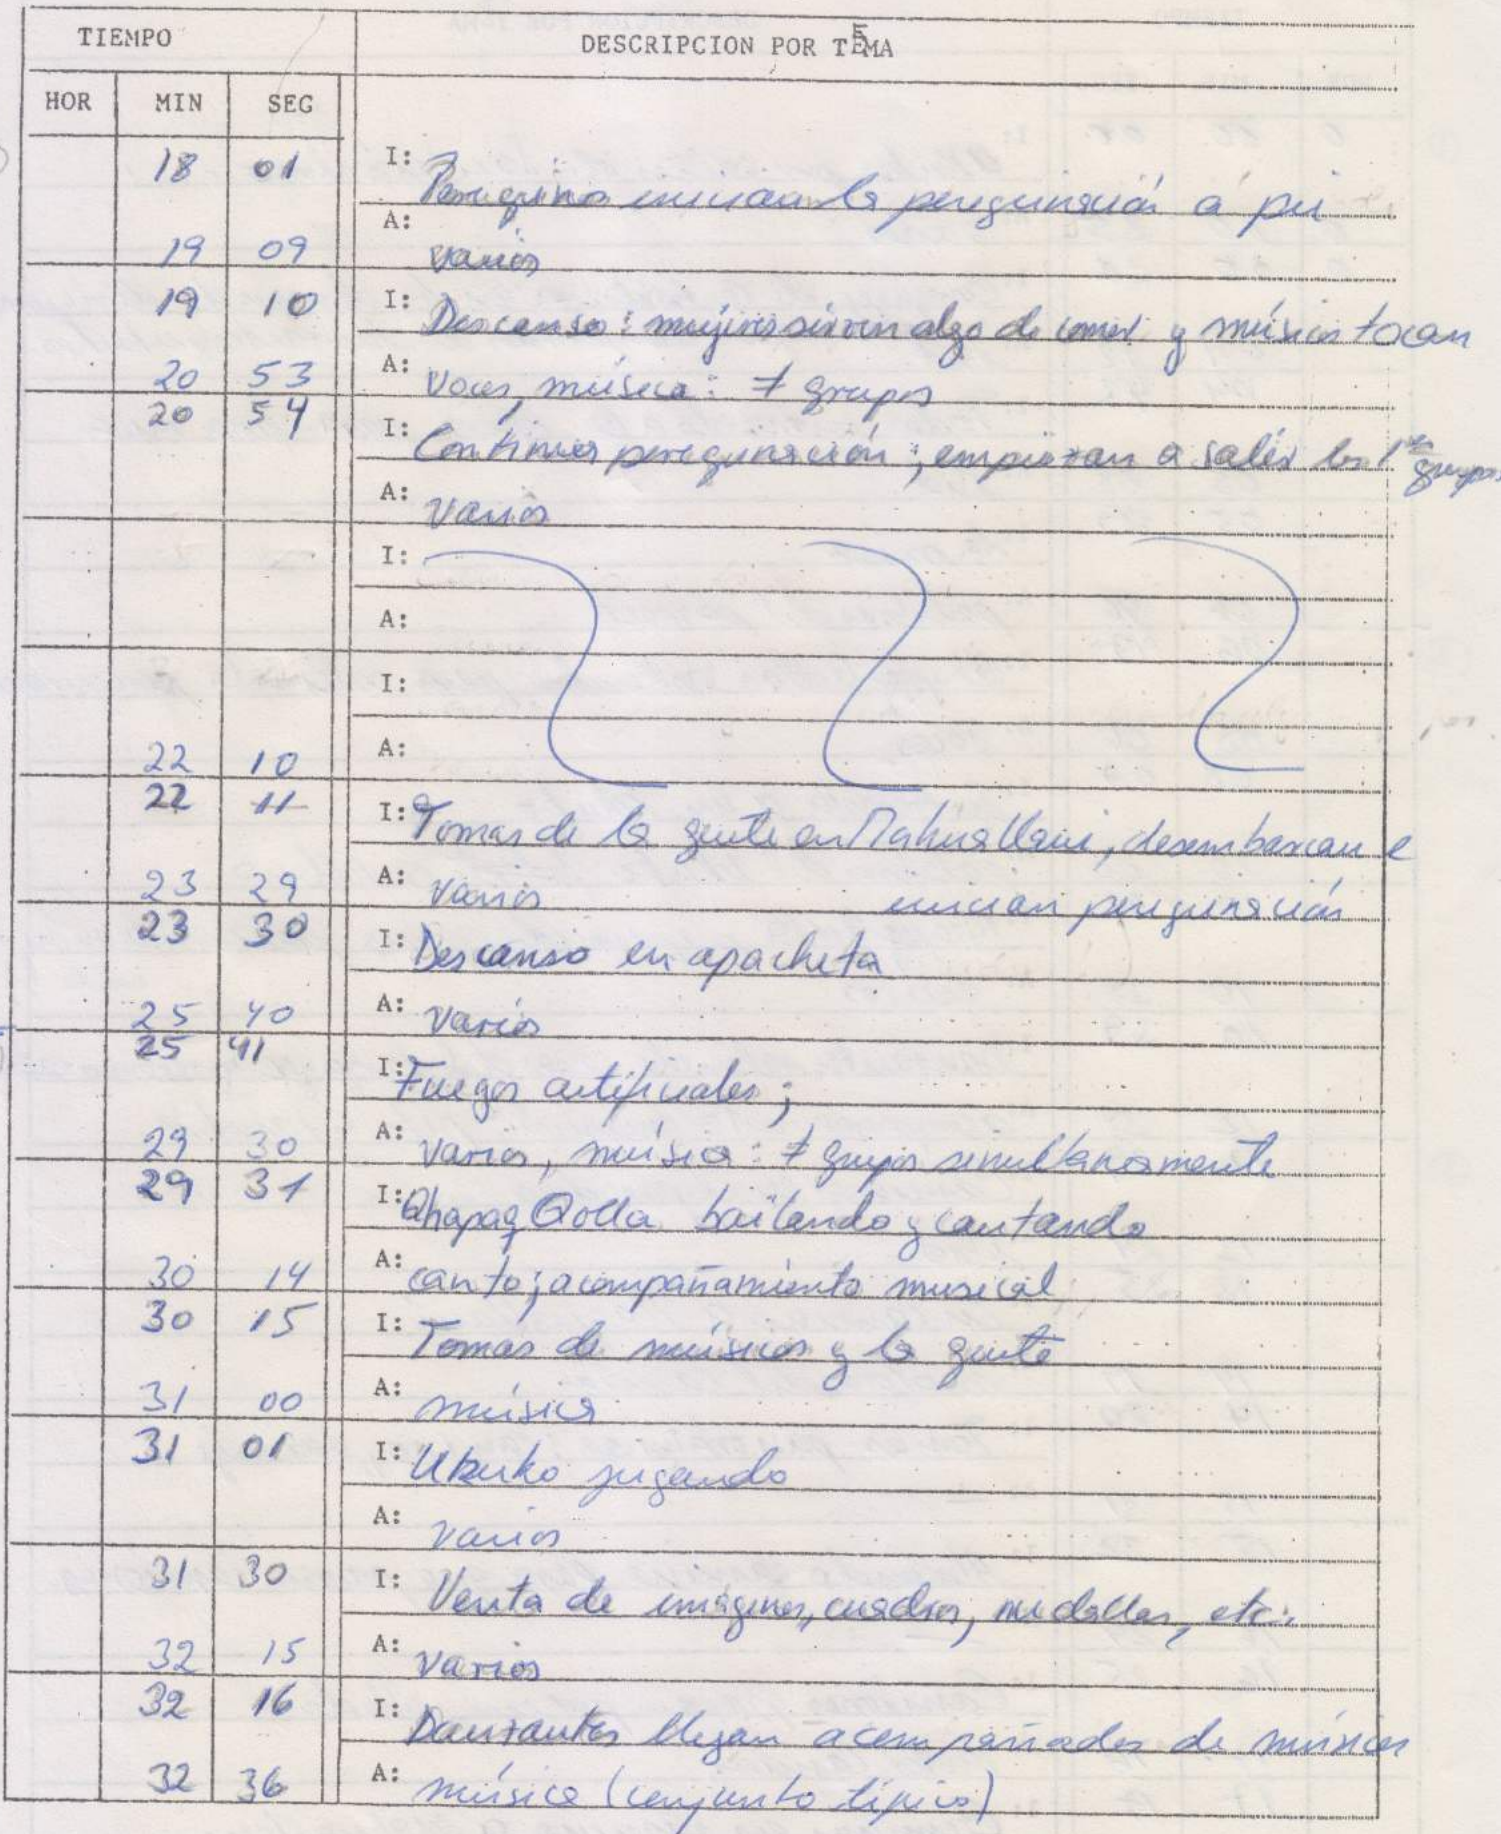 TIEMPO DESCRIPCION POR TEMA
HOR MIN SEG
18 01 I: Peregrinos inician la peregrinación a pie
A:
19 09 varios
19 10 I: Descanso: mujeres sirven algo de comer y músicos tocan
20 53 A: Voces, música: ≠ grupos
20 54 I: Continua peregrinación; empiezan a salir los 1ros grupos
A: Varios
I:
A:
I:
22 10 A:
22 11 I: Tomas de la gente en Mahuallani, desembarcan e
23 29 A: varios inician peregrinación
23 30 I: Descanso en apacheta
25 40 A: varios
25 41 I: Fuegos artificiales;
29 30 A: varios, música: ≠ grupos simultaneamente
29 31 I: Qhapaq Qolla bailando y cantando
30 14 A: canto; acompañamiento musical
30 15 I: Tomas de músicos y la gente
31 00 A: música
31 01 I: Ukuko jugando
A: varios
31 30 I: Venta de imágenes, cuadros, medallas, etc.
32 15 A: varios
32 16 I: Danzantes llegan acompañados de músicos
32 36 A: música (conjunto típico)